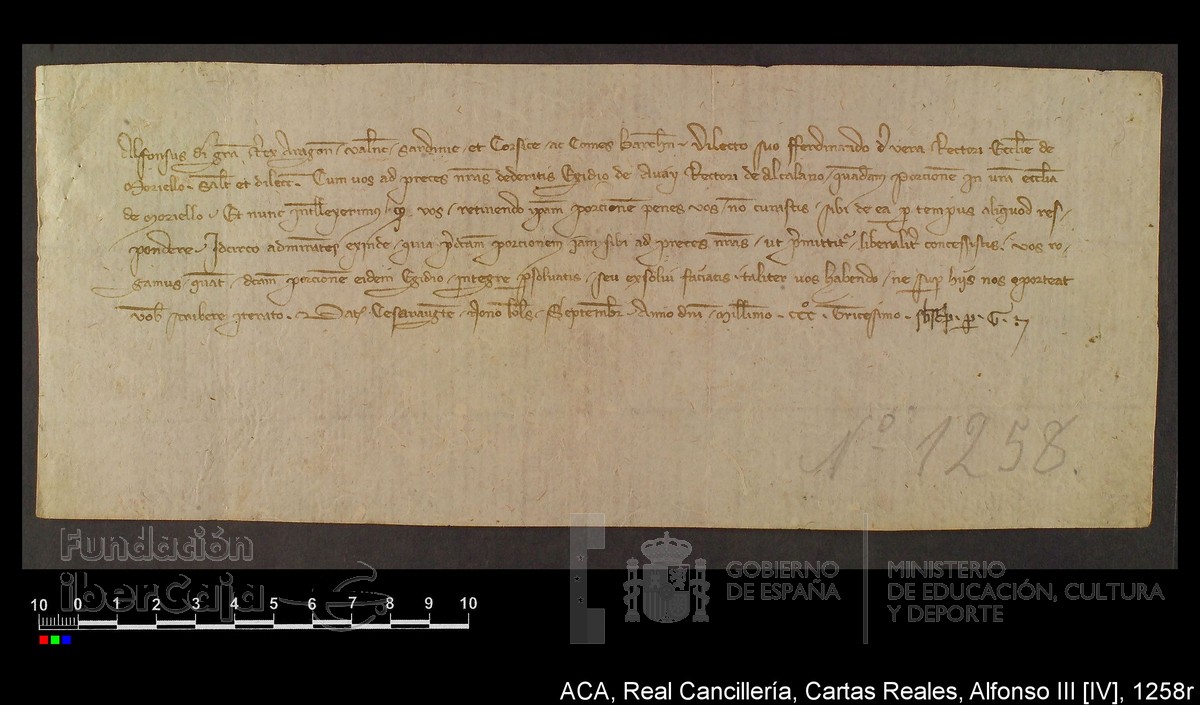 Alfonsus di gra Rex Aragon Valenc Sardinie et Corsice ac Comes Barchn Dilecto suo fferdinando de vera Rectori Ecclie de
Moriello Salt et dilecc Cum vos ad preces nras dederitis Egidio de Rectori de alcalano quandam Porcionem in vra ecclia
de Moriello Et nunc intellexerimus qd vos retinendo ipam porcionem penes vos non curastis sibi de ea per tempus aliquod res
pondere Idcirco admirantes exinde quia pdcam porcionem iam sibi ad preces nras ut pmittitur liberalit concessistis vos ro
gamus quat dcam porcionem eidem Egidio integre psolvatis seu exsolvi faciatis taliter vos habendo ne sup hijs nos oporteat
vob scribere iterato Dat Cesarauguste Nono kls Septembr Anno dni Millimo CCC Tricesimo G
Nº 1258.
Fundación
iberCaja
GOBIERNO
DE ESPAÑA
MINISTERIO
DE EDUCACIÓN, CULTURA
Y DEPORTE
10 0 1 2 3 4 5 6 7 8 9 10
ACA, Real Cancillería, Cartas Reales, Alfonso III [IV], 1258r